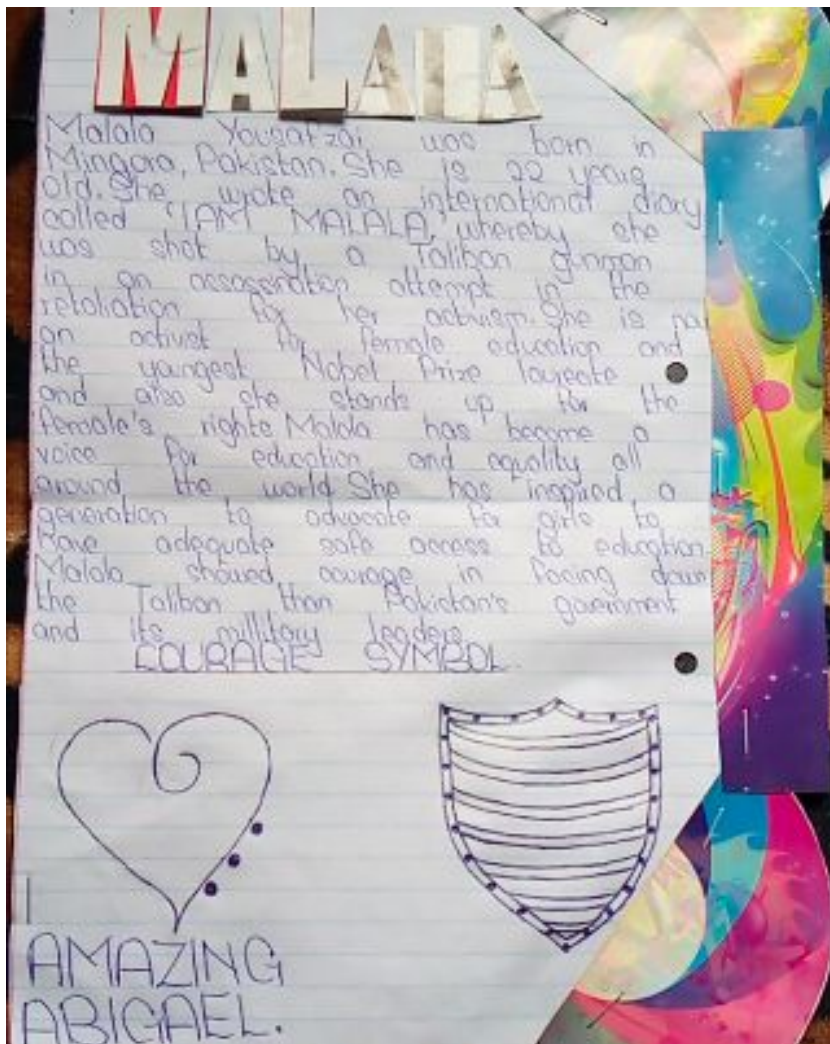 MALALA
Malala Yousafzai was born in
Mingora, Pakistan. She is 22 years
old. She wrote an international diary
called "I AM MALALA," whereby she
was shot by a Taliban gunman
in an assassination attempt in the
retaliation for her activism. She is
an activist for female education and
the youngest Nobel Prize laureate
and also she stands up for the
female's rights Malala has become a
voice for education and equality all
around the world She has inspired a
generation to advocate for girls to
have adequate safe access to education.
Malala showed courage in facing down
the Taliban than Pakistan's government
and its millitary leaders
COURAGE SYMBOL.
AMAZING
ABIGAEL.